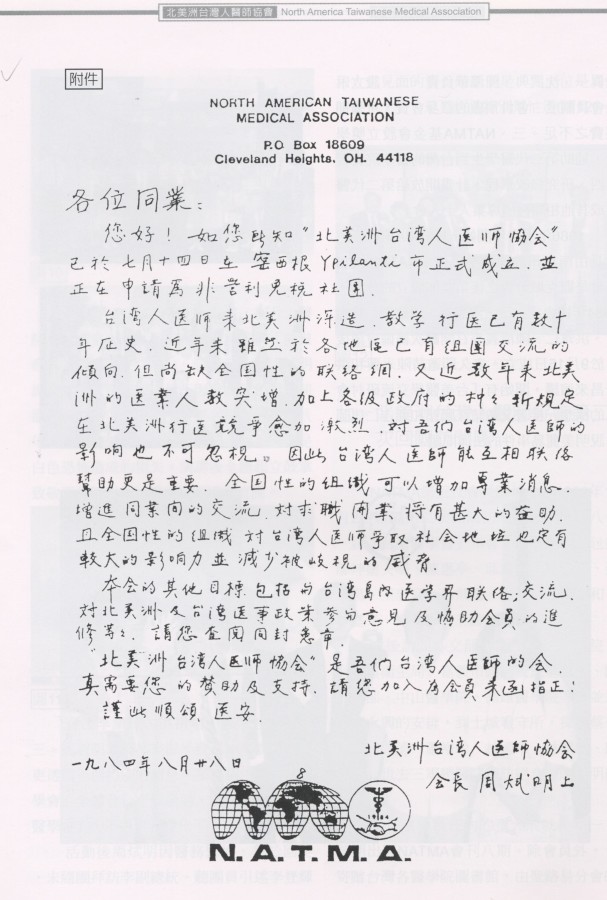 北美洲台灣人醫師協會 North America Taiwanese Medical Association
附件
NORTH AMERICAN TAIWANESE
MEDICAL ASSOCIATION
P.O Box 18609
Cleveland Heights, OH. 44118
各位同業：
您好！如您所知"北美洲台湾人医师協会"
已於七月十四日在密西根 Ypilanti 市正式成立．並
正在申請為非营利免稅社團．
台湾人医师來北美洲深造．教学行医已有数十
年历史．近年來雖然於各地區已有組團交流的
傾向．但尚缺全国性的联络網．又近数年来北美
洲的医業人数突增．加上各级政府的种々新規定
在北美洲行医競爭愈加激烈．対吾们台湾人医師的
影响也不可忽視。因此台湾人医師能互相联络
幫助更是重要．全国性的组織可以增加専業消息．
增進同業间的交流．対求職開業将有甚大的益助．
且全国性的组織対台湾人医師爭取社会地位也定有
較大的影响力並減少被歧視的威脅．
本会的其他目標包括与台湾島内医学界联络；交流．
対北美洲及台湾医事政策参与意見及協助会員的進
修等々．請您查閱同封惠章．
"北美洲台湾人医师協会"是吾们台湾人医師的会．
真需要您的赞助及支持．請您加入为会員來函指正！
謹此順頌医安．
北美洲台湾人医師協会
一九八四年八月廿八日
会長 周烒明上
8
1984
N.A.T.M.A.